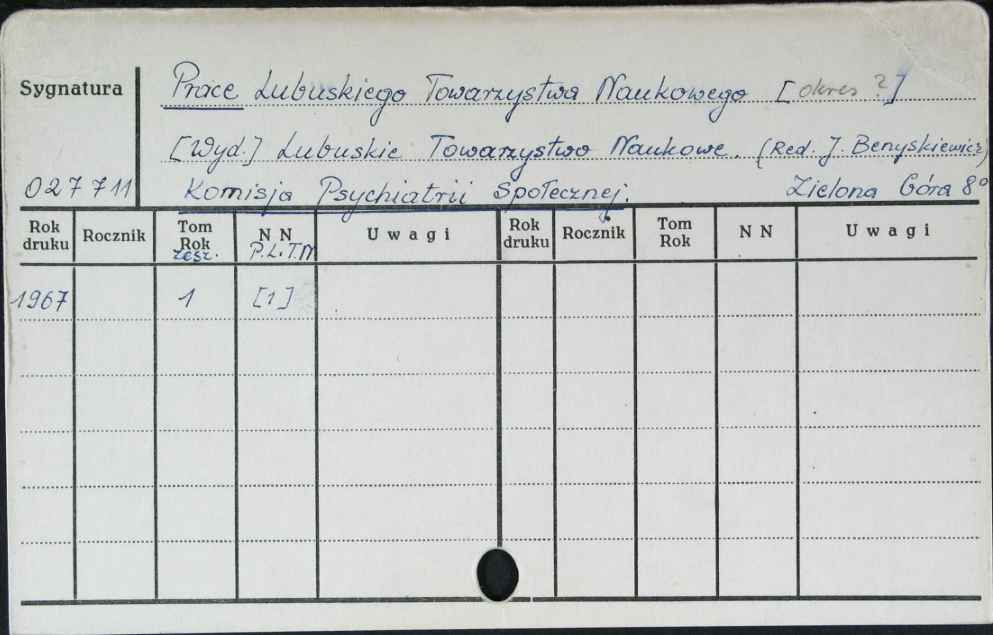 Sygnatura
Prace Lubuskiego Towarzystwa Naukowego [okres ?]
[Wyd.] Lubuskie Towarzystwo Naukowe. (Red. J. Benyskiewicz)
027 711 Komisja Psychiatrii Społecznej. Zielona Góra 8°
Rok druku Rocznik Tom Rok zesz. NN P.L.T.N Uwagi Rok druku Rocznik Tom Rok NN Uwagi
1967 1 [1]